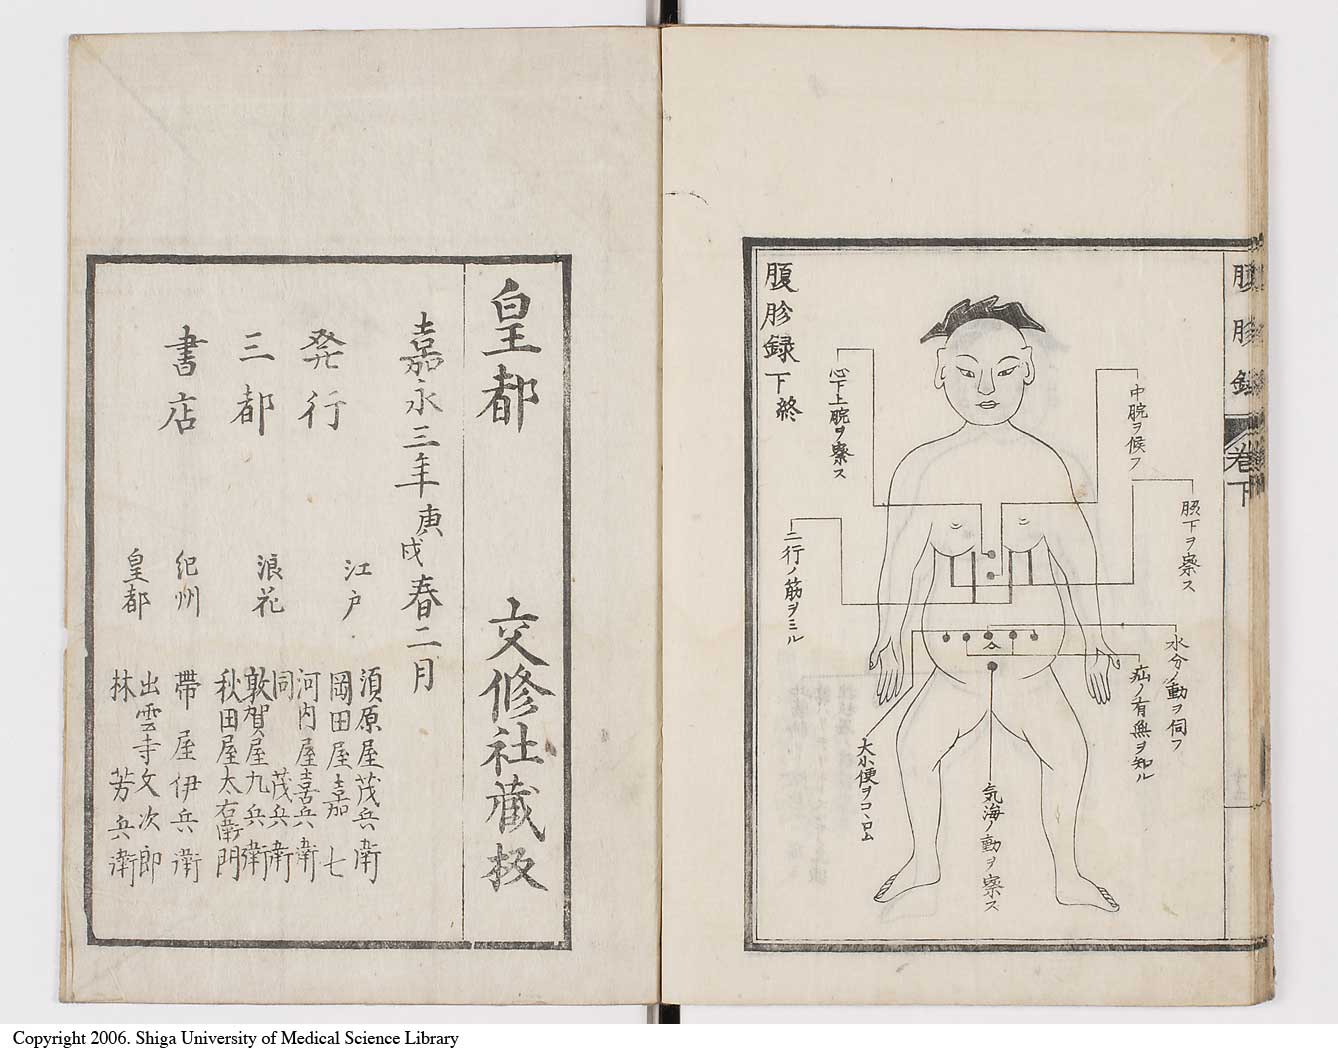 腹胗録
卷下
腹胗録下終
中脘ヲ候フ
心下上脘ヲ察ス
脇下ヲ察ス
二行ノ筋ヲミル
水分ノ動ヲ伺フ
疝ノ有無ヲ知ル
大小便ヲコヽロム
気海ノ動ヲ察ス
皇都 文修社蔵板
嘉永三年庚戌春二月
発行
三都
書店
江戸 須原屋茂兵衛
岡田屋嘉七
浪花 河内屋喜兵衛
同 茂兵衛
敦賀屋九兵衛
秋田屋太右衛門
紀州 帯屋伊兵衛
皇都 出雲寺文次郎
林 芳兵衛
Copyright 2006. Shiga University of Medical Science Library